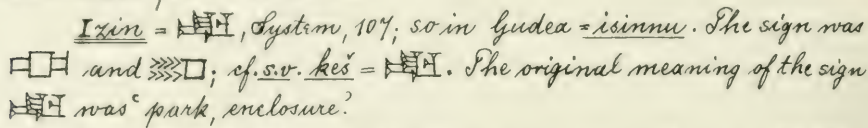 Izin = 𒂡, System, 107; so in Gudea = isinnu. The sign was
and ; cf. s.v. keš = 𒂡. The original meaning of the sign
𒂡 was "park, enclosure".